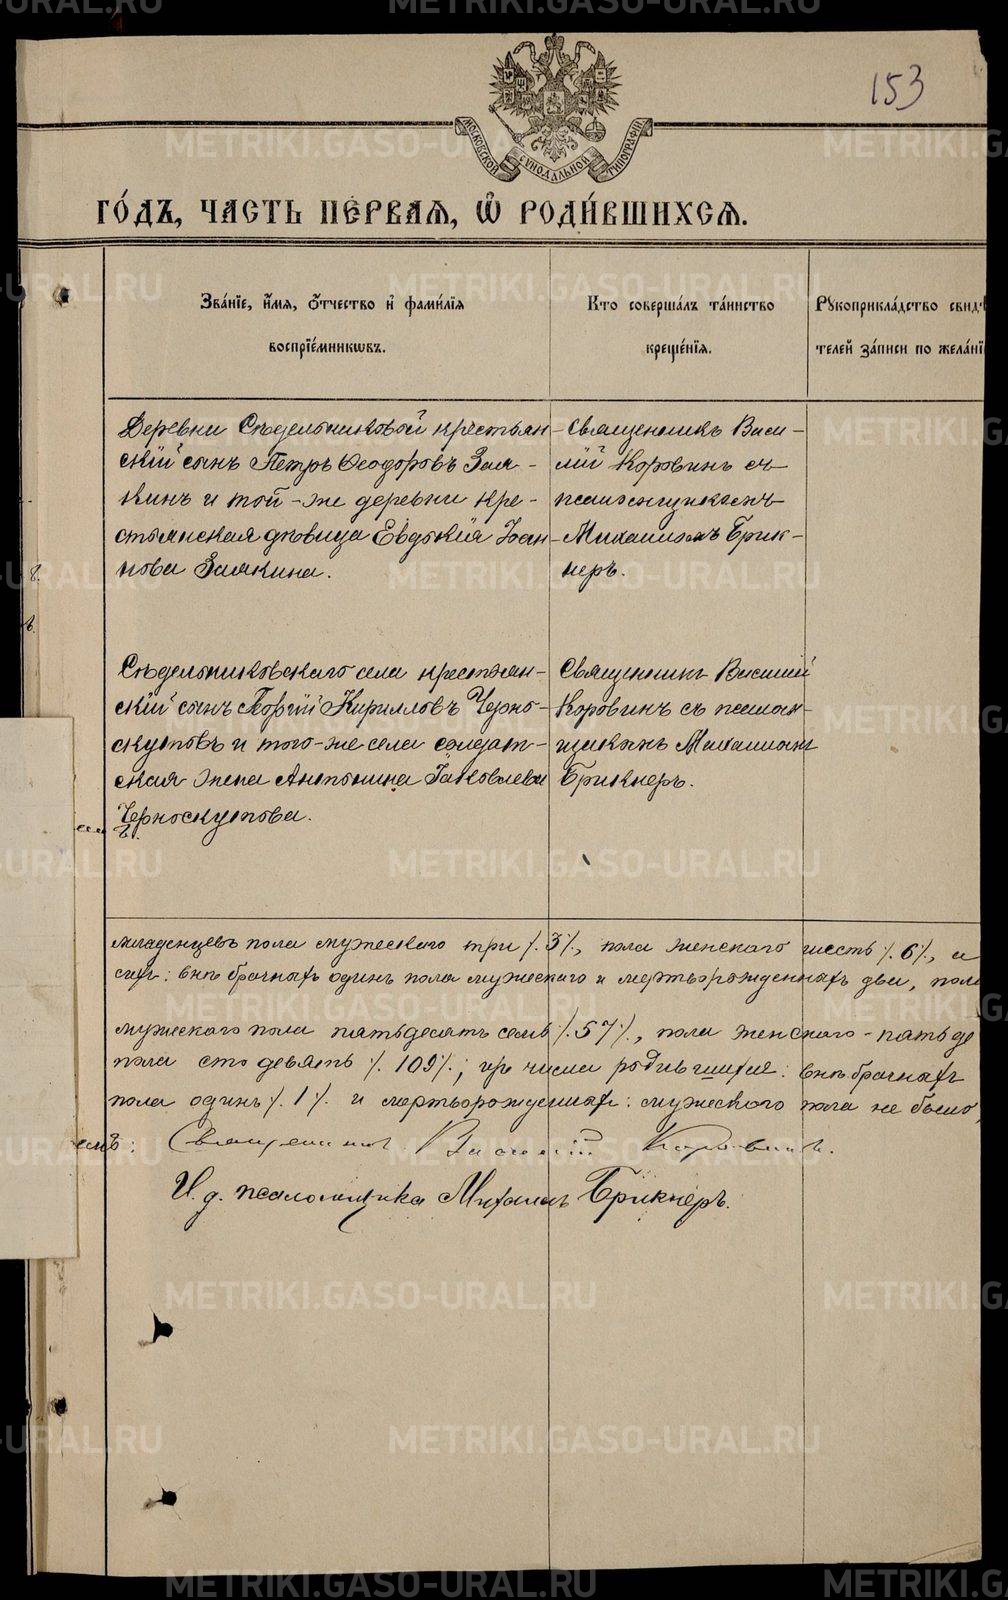 153
МОСКОВСКОЙ СУНОДАЛЬНОЙ ТИПОГРАФІИ
ГО́ДЪ, ЧАСТЬ ПЕ́РВАѦ, Ѡ҆ РОДИ́ВШИХСѦ.
Зва́нїе, и҆́мѧ, о҆́тчество и҆ фами́лїѧ
воспрїе́мникѡвъ.
Кто соверша́лъ та́инство
креще́нїѧ.
Рꙋкоприкла́дство свид
телей за́писи по жела́нї
Деревни Сѣдельниковой крестьян-
скій сынъ Петръ Ѳеодоровъ Зам-
кинъ и той-же деревни кре-
стьянская дѣвица Евдокія Іоан-
нова Замкина.
Священникъ Васи-
лій Коровинъ съ
псаломщикомъ
Михаиломъ Брик-
неръ.
Сѣдельниковскаго села крестьян-
скій сынъ Георгій Кирилловъ Черно-
скутовъ и того-же села солдат-
ская жена Антонина Іаковлева
Черноскутова.
Священникъ Василій
Коровинъ съ псалом-
щикомъ Михаиломъ
Брикнеръ.
младенцевъ пола мужескаго три /.3/., пола женскаго шесть /.6/., а
сихъ: внѣбрачныхъ одинъ пола мужескаго и мертворожденныхъ два, пола
мужескаго пола пятьдесятъ семь /.57/., пола женскаго - пятьде
пола сто девять /.109/.; изъ числа родившихся: внѣбрачныхъ
пола одинъ /.1/. и мертворожденныхъ: мужескаго пола не было,
Священникъ Василій Коровинъ.
И. д. псаломщика Михаилъ Брикнеръ.
METRIKI.GASO-URAL.RU